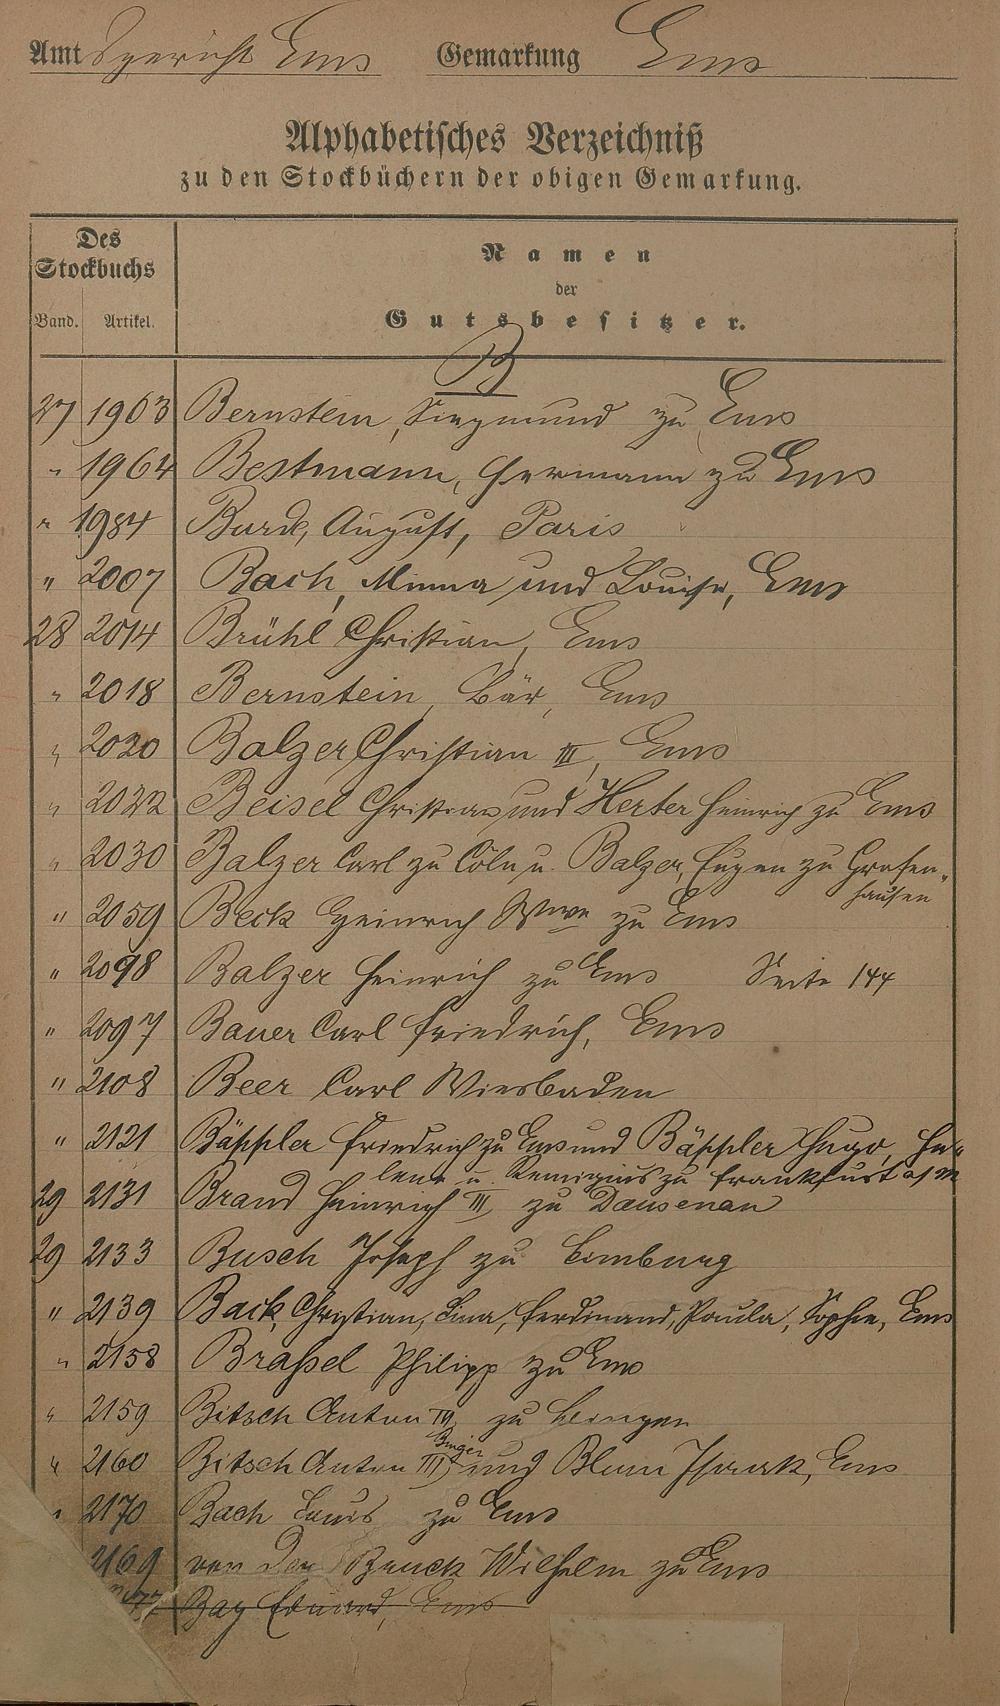 Amtsgericht Ems Gemarkung Ems
Alphabetisches Verzeichniß
zu den Stockbüchern der obigen Gemarkung.
Des Stockbuchs
Namen
der
Gutsbesitzer.
Band. Artikel.
B
27 1963 Bernstein, Siegmund zu Ems
" 1964 Bestmann, Hermann zu Ems
" 1984 Burde, August, Paris
" 2007 Bach, Minna und Louise, Ems
28 2014 Brühl Christian, Ems
" 2018 Bernstein, Bär, Ems
" 2020 Balzer Christian III, Ems
" 2022 Beisel Christian und Herter Heinrich zu Ems
" 2030 Balzer Carl zu Cöln u. Balzer, Eugen zu Grafen-
hausen
" 2059 Beck Heinrich Wwe zu Ems
" 2098 Balzer Heinrich zu Ems Seite 144
" 2097 Bauer Carl Friedrich, Ems
" 2108 Beer Carl Wiesbaden
" 2121 Bäppler Friedrich zu Ems und Bäppler Hugo, He-
lene u. Remigius zu Frankfurt a/M
29 2131 Brand Heinrich III zu Dausenau
29 2133 Busch Joseph zu Limburg
" 2139 Back, Christian, Lina, Ferdinand, Paula, Sophie, Ems
" 2158 Braßel Philipp zu Ems
" 2159 Bitsch Anton III zu
" 2160 Bitsch Anton III und Blum Isaak, Ems
" 2170 Bach Louis zu Ems
2169 von den Bruck Wilhelm zu Ems
Bay Eduard, Ems